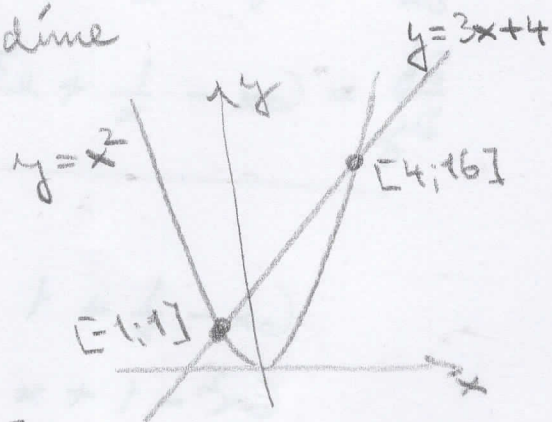 díme
y=3x+4
y
y=x²
[4;16]
[-1;1]
x